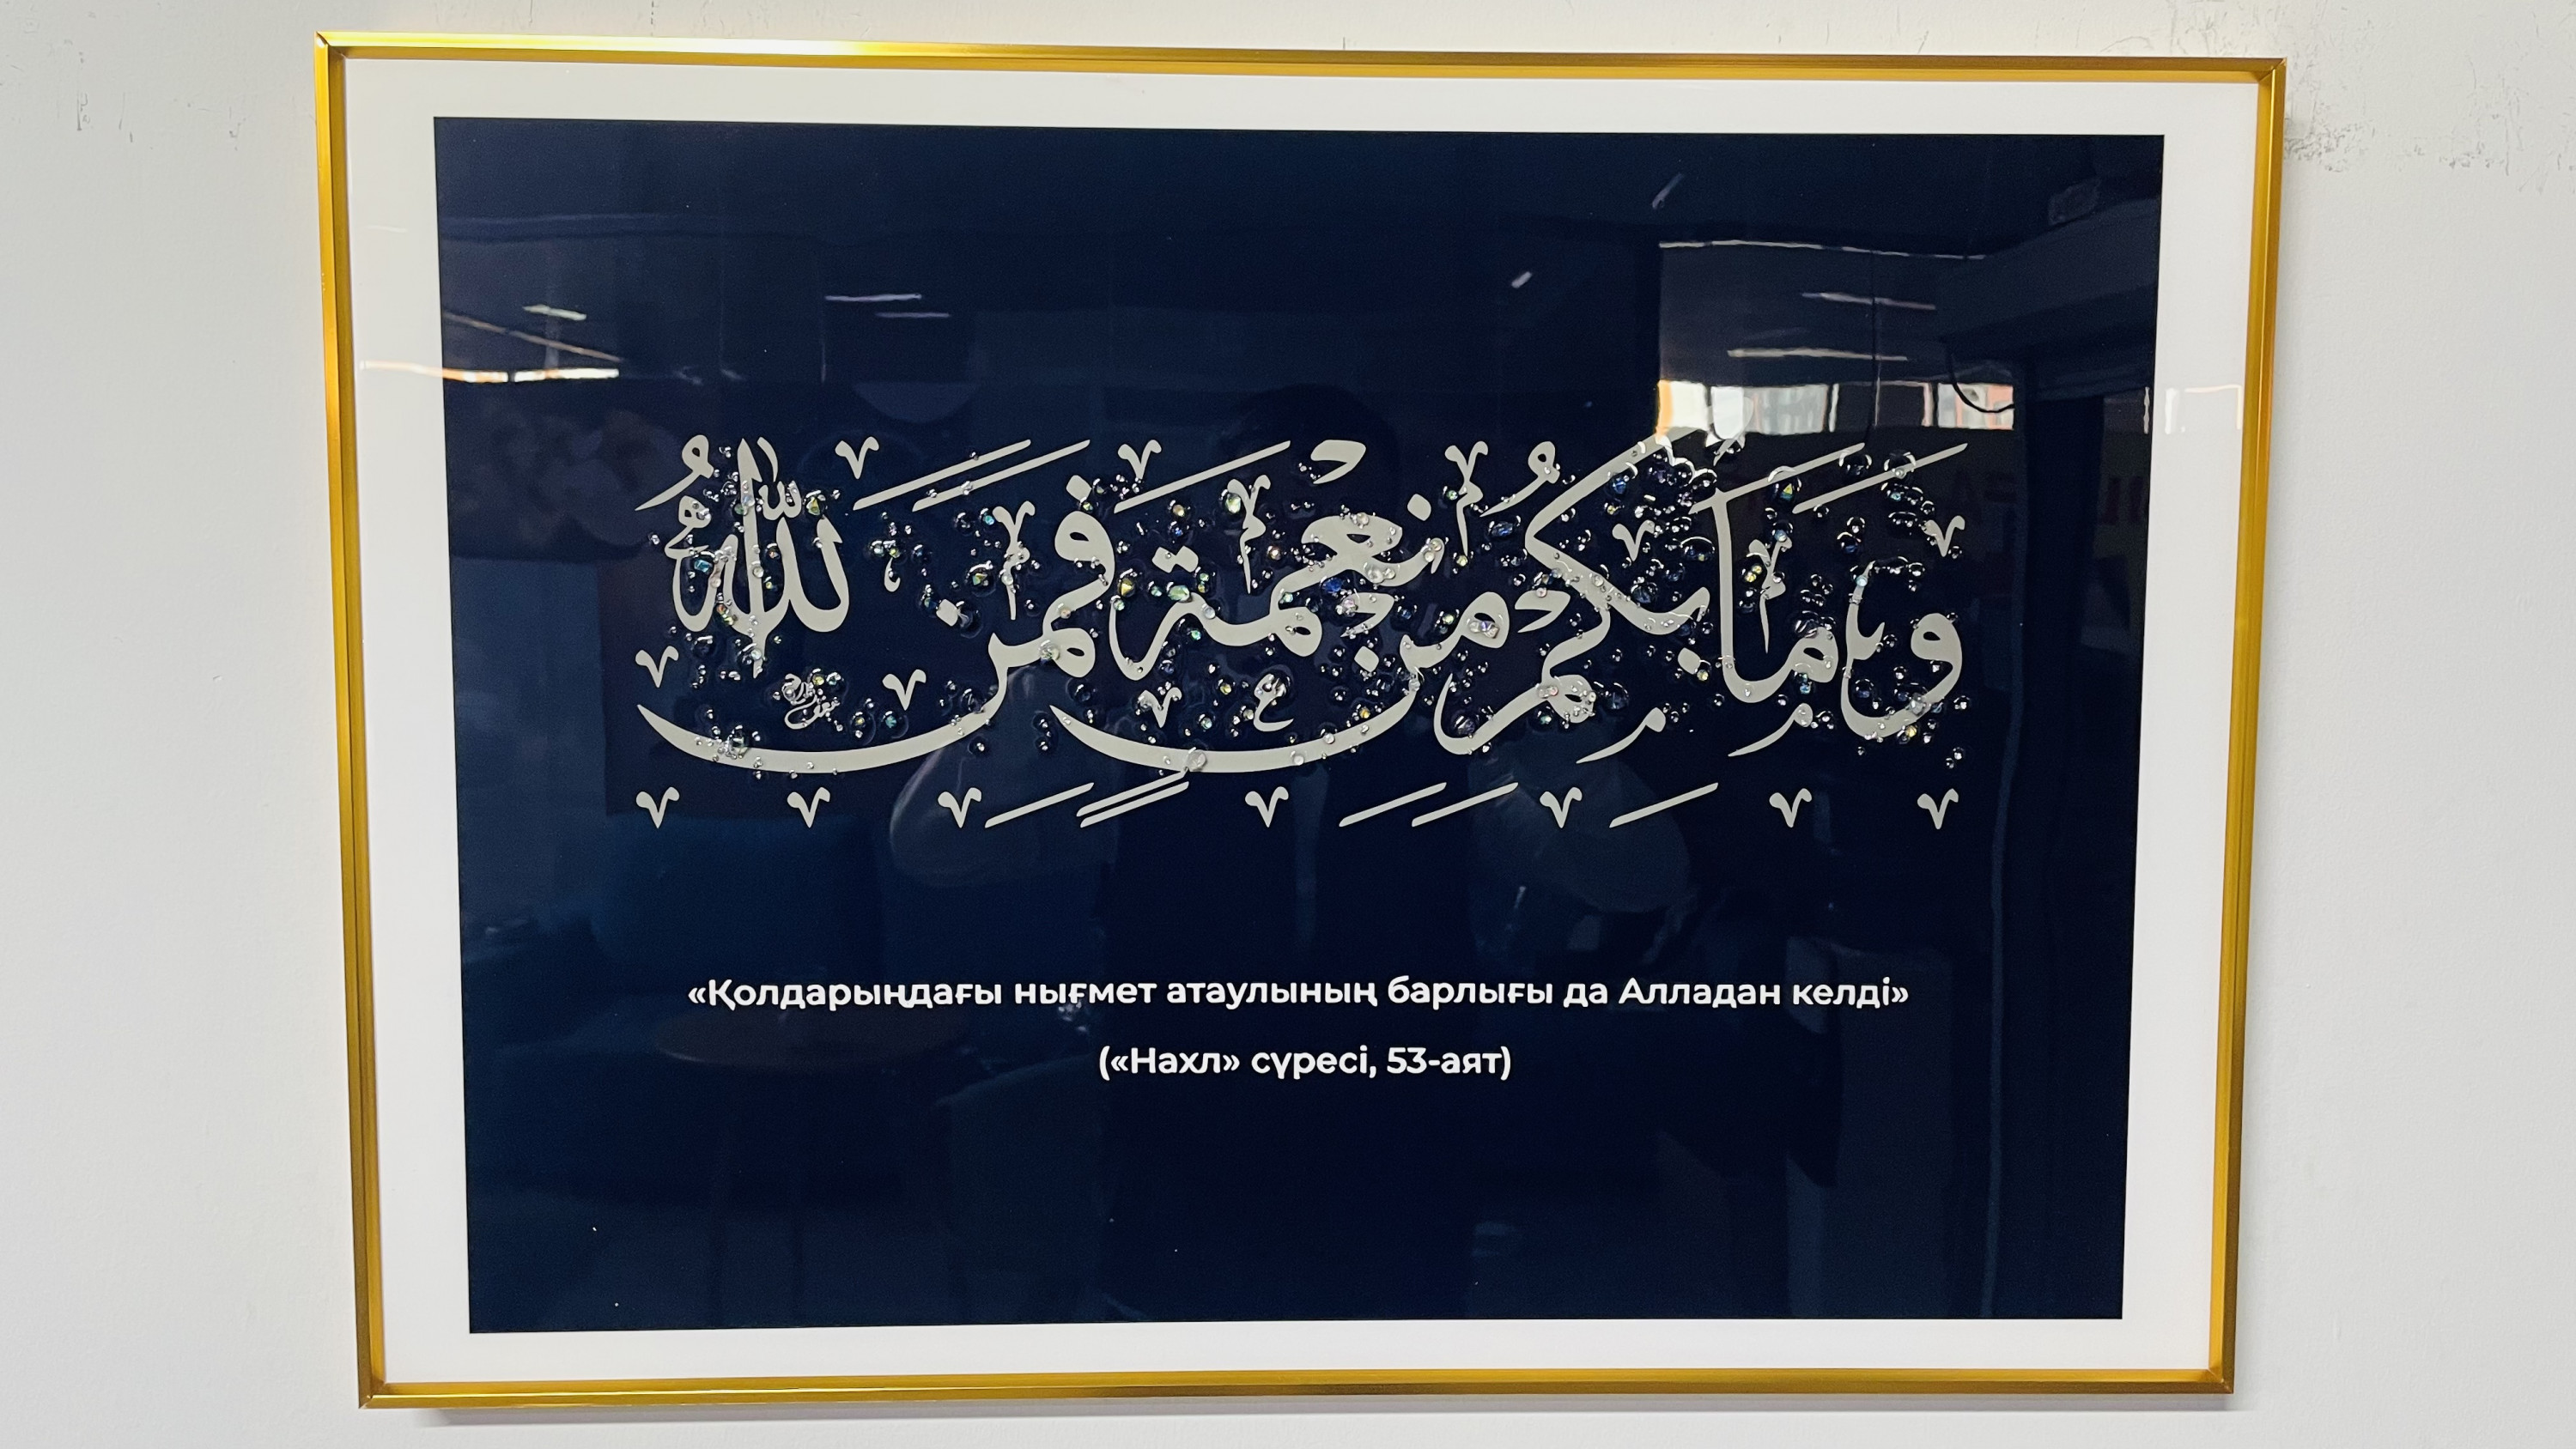 وَمَا بِكُمْ مِنْ نِعْمَةٍ فَمِنَ اللّٰهِ
«Қолдарыңдағы нығмет атаулының барлығы да Алладан келді»
(«Нахл» сүресі, 53-аят)